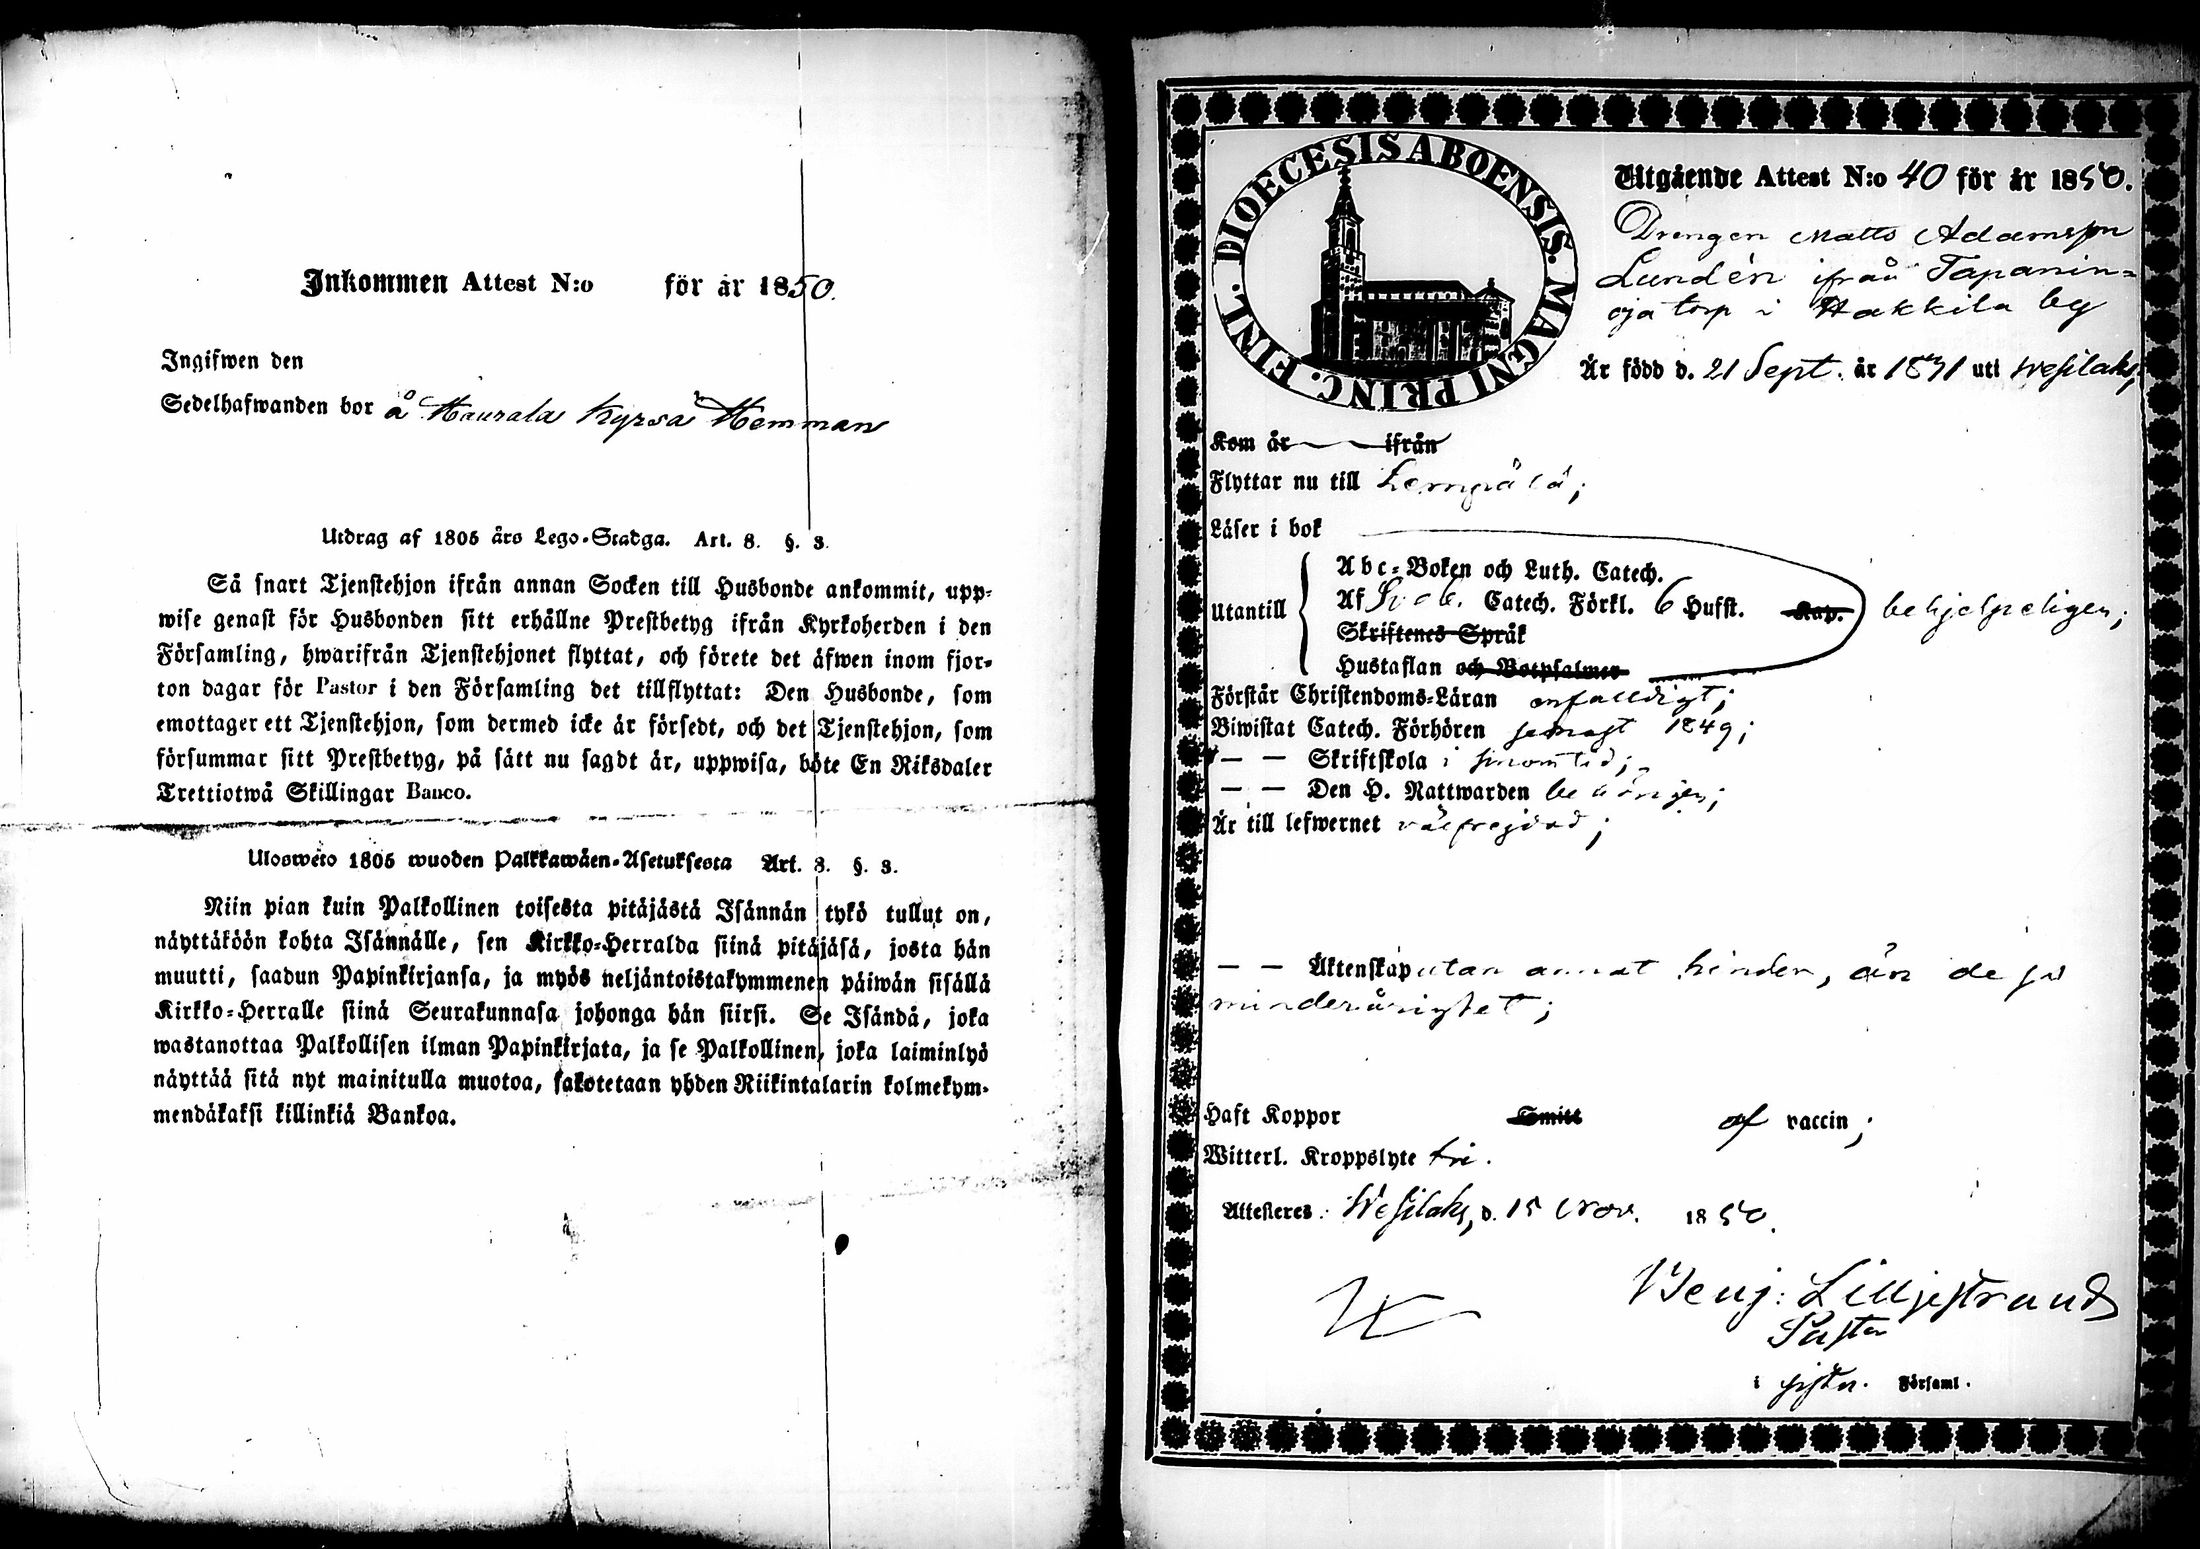 Inkommen Attest N:o för år 1850.
Ingifwen den
Sedelhafwanden bor å Haurala Kyrsä Hemman
Utdrag af 1805 års Lego-Stadga. Art. 8. §. 3.
Så snart Tjenstehjon ifrån annan Socken till Husbonde ankommit, upp-
wise genast för Husbonden sitt erhållne Prestbetyg ifrån Kyrkoherden i den
Församling, hwarifrån Tjenstehjonet flyttat, och förete det äfwen inom fjor-
ton dagar för Pastor i den Församling det tillflyttat: Den Husbonde, som
emottager ett Tjenstehjon, som dermed icke är försedt, och det Tjenstehjon, som
försummar sitt Prestbetyg, på sätt nu sagdt är, uppwisa, böte En Riksdaler
Trettiotwå Skillingar Banco.
Ulosweto 1805 wuoden Palkkawäen-Asetuksesta Art. 8. §. 3.
Niin pian kuin Palkollinen toisesta pitäjästä Isännän tykö tullut on,
näyttäköön kohta Isännälle, sen Kirkko-Herralda siinä pitäjäsä, josta hän
muutti, saadun Papinkirjansa, ja myös neljäntoistakymmenen päiwän sisällä
Kirkko-Herralle siinä Seurakunnasa johonga hän siirsi. Se Isändä, joka
wastanottaa Palkollisen ilman Papinkirjata, ja se Palkollinen, joka laiminlyö
näyttää sitä nyt mainitulla muotoa, sakotetaan yhden Riikintalarin kolmekym-
mendäkaksi killinkiä Bankoa.
DIOECESIS ABOENSIS. MAGNI PRINC. FINL.
Utgående Attest N:o 40 för år 1850.
Drengen Matts Adamsson
Lundén ifrån Tapanin-
oja torp i Hakkila by
Är född d. 21 Sept. år 1831 uti Wesilaks,
Kom år ifrån
Flyttar nu till Lempälä;
Läser i bok
Utantill
Abc-Boken och Luth. Catech.
Af Sveb. Catech. Förkl. 6 Hufst. Kap. behjelpeligen;
Skriftenes Språk
Hustaflan och Botpsalmer
Förstår Christendoms-Läran enfalldigt;
Biwistat Catech. Förhören senast 1849;
— — Skriftskola i sinom tid;
— — Den H. Nattwarden behörigen;
Är till lefwernet välfrejdad;
— — Äktenskap utan annat hinder, än dess
minderårighet;
Haft Koppor Smitt af vaccin;
Witterl. Kroppslyte fri.
Attesteres. Wesilaks, d. 15 Nov. 1850.
Benj: Lilljestrand
Pastor
i Församl.